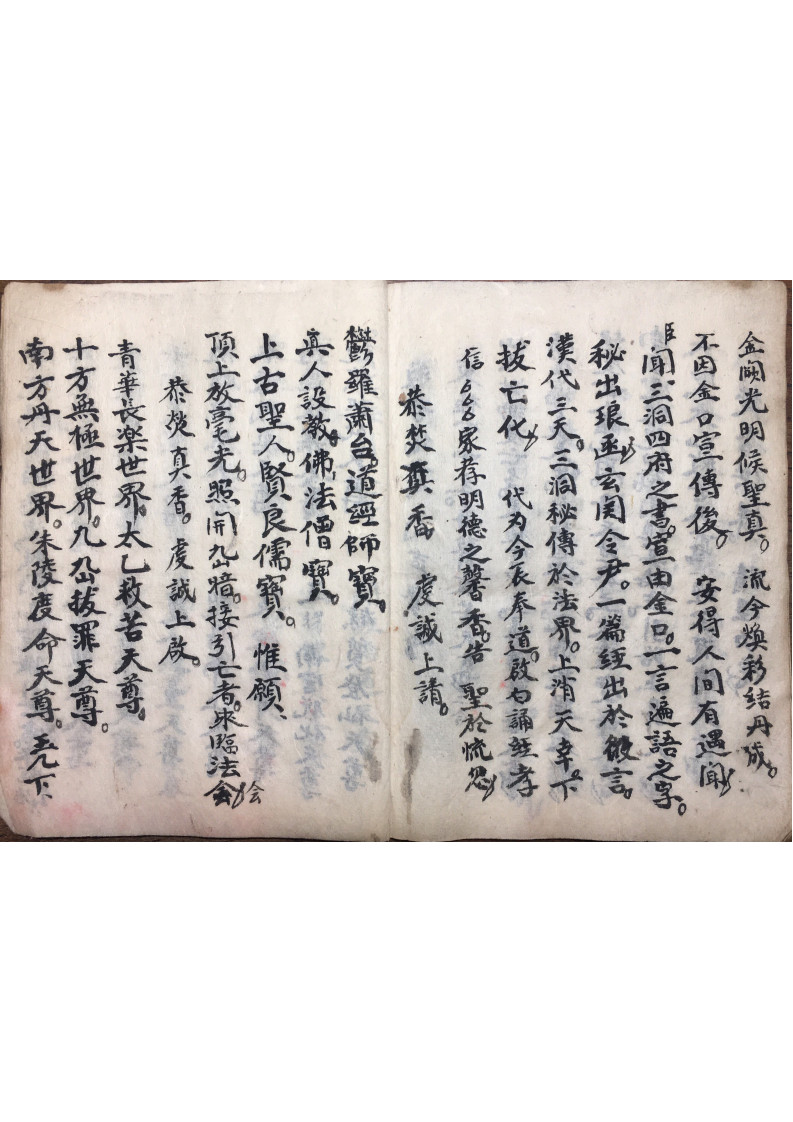 金阙光明候聖真。 流今煥彩结丹成。
不因金口宣傳後。 安得人间有遇闻
臣闻、三洞四府之書。宣由金口。一言遍語之字。
秘出琅函。玄関令尹。一篇经出於微言。
漢代三天。三洞秘傳於法界。上消天幸。下
拔亡代 代为今辰奉道。啟句誦經孝
信 家荐明德之馨香。告 聖於慌忽
恭焚真香 虔誠上請。
鬱羅蕭台道經師寶。
真人設教。佛法僧寶。
上古聖人。賢良儒寶。 惟願、
頂上放毫光。照開九幽暗。接引亡者。来臨法会 会
恭焚真香。虔誠上啟。
青華長樂世界。太乙救苦天尊。
十方無極世界。九幽拔罪天尊。
南方丹天世界。朱陵度命天尊。 下、